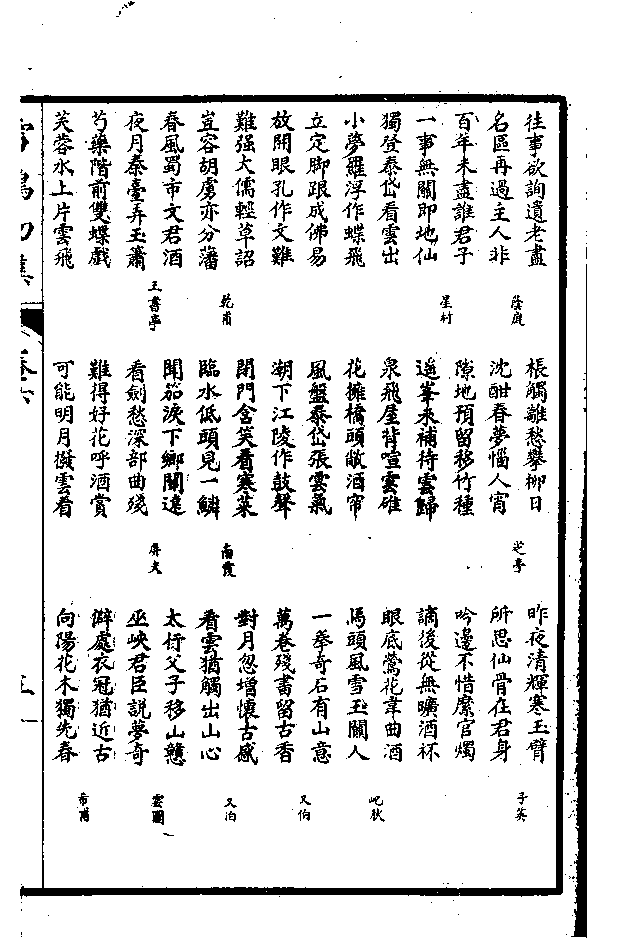 往事欲詢遺老盡
名區再過主人非 蔭庭
百年未盡誰君子
一事無關即地仙 星村
獨登泰岱看雲出
小夢羅浮作蝶飛
立定脚跟成佛易
放開眼孔作文難
難强大儒輕草詔
豈容胡虜亦分藩 乾甫
春風蜀市文君酒
夜月秦臺弄玉簫 王書亭
芍藥階前雙蝶戲
芙蓉水上片雲飛
棖觸離愁攀柳日
沈酣春夢惱人宵 芝亭
隙地預留移竹種
遥峯未補待雲歸
泉飛屋背喧雲碓
花擁橋頭敞酒帘
風盤泰岱張雲氣
潮下江陵作鼓聲
閉門含笑看寒菜
臨水低頭見一鱗 南霞
聞笳淚下鄉關遠
看劍愁深部曲殘 屏夫
難得好花呼酒賞
可能明月撥雲看
昨夜清輝寒玉臂
所思仙骨在君身 子英
吟邊不惜縻官燭
謫後從無曠酒杯
眼底鶯花韋曲酒
馬頭風雪玉關人
一拳奇石有山意
萬卷殘書留古香 又伯
對月忽增懷古感
看雲猶觸出山心 又伯
太行父子移山戇
巫峽君臣說夢奇 雲圖
僻處衣冠猶近古
向陽花木獨先春 希甫
雪鴻初集 卷六